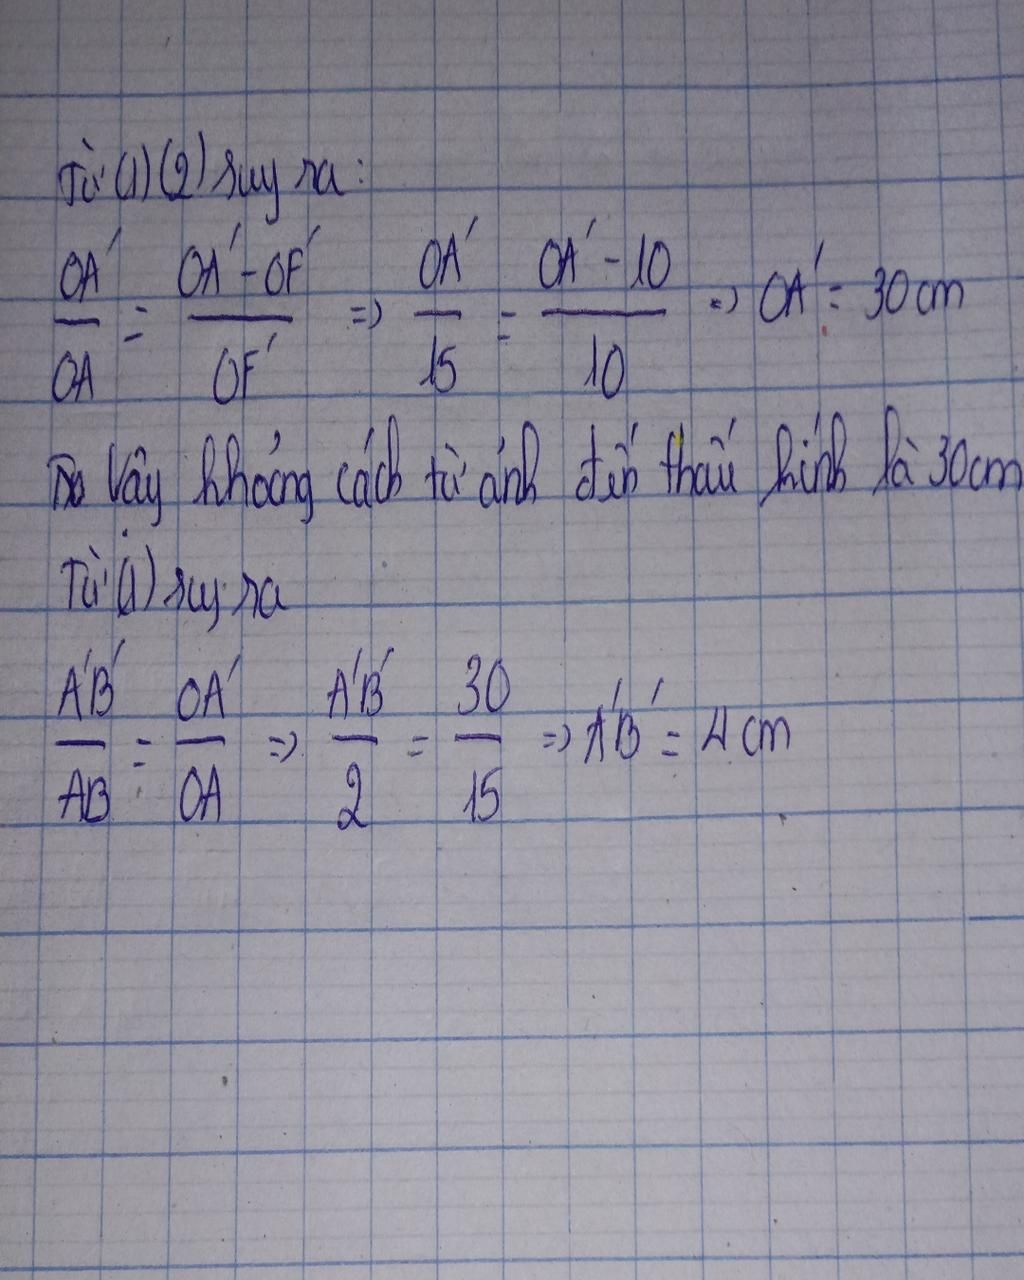 Từ (1) (2) suy ra:
OA'/OA = OA' - OF'/OF' => OA'/15 = OA' - 10/10 => OA' = 30 cm
Vậy khoảng cách từ ảnh đến thấu kính là 30cm
Từ (1) suy ra
A'B'/AB = OA'/OA => A'B'/2 = 30/15 => A'B' = 4 cm